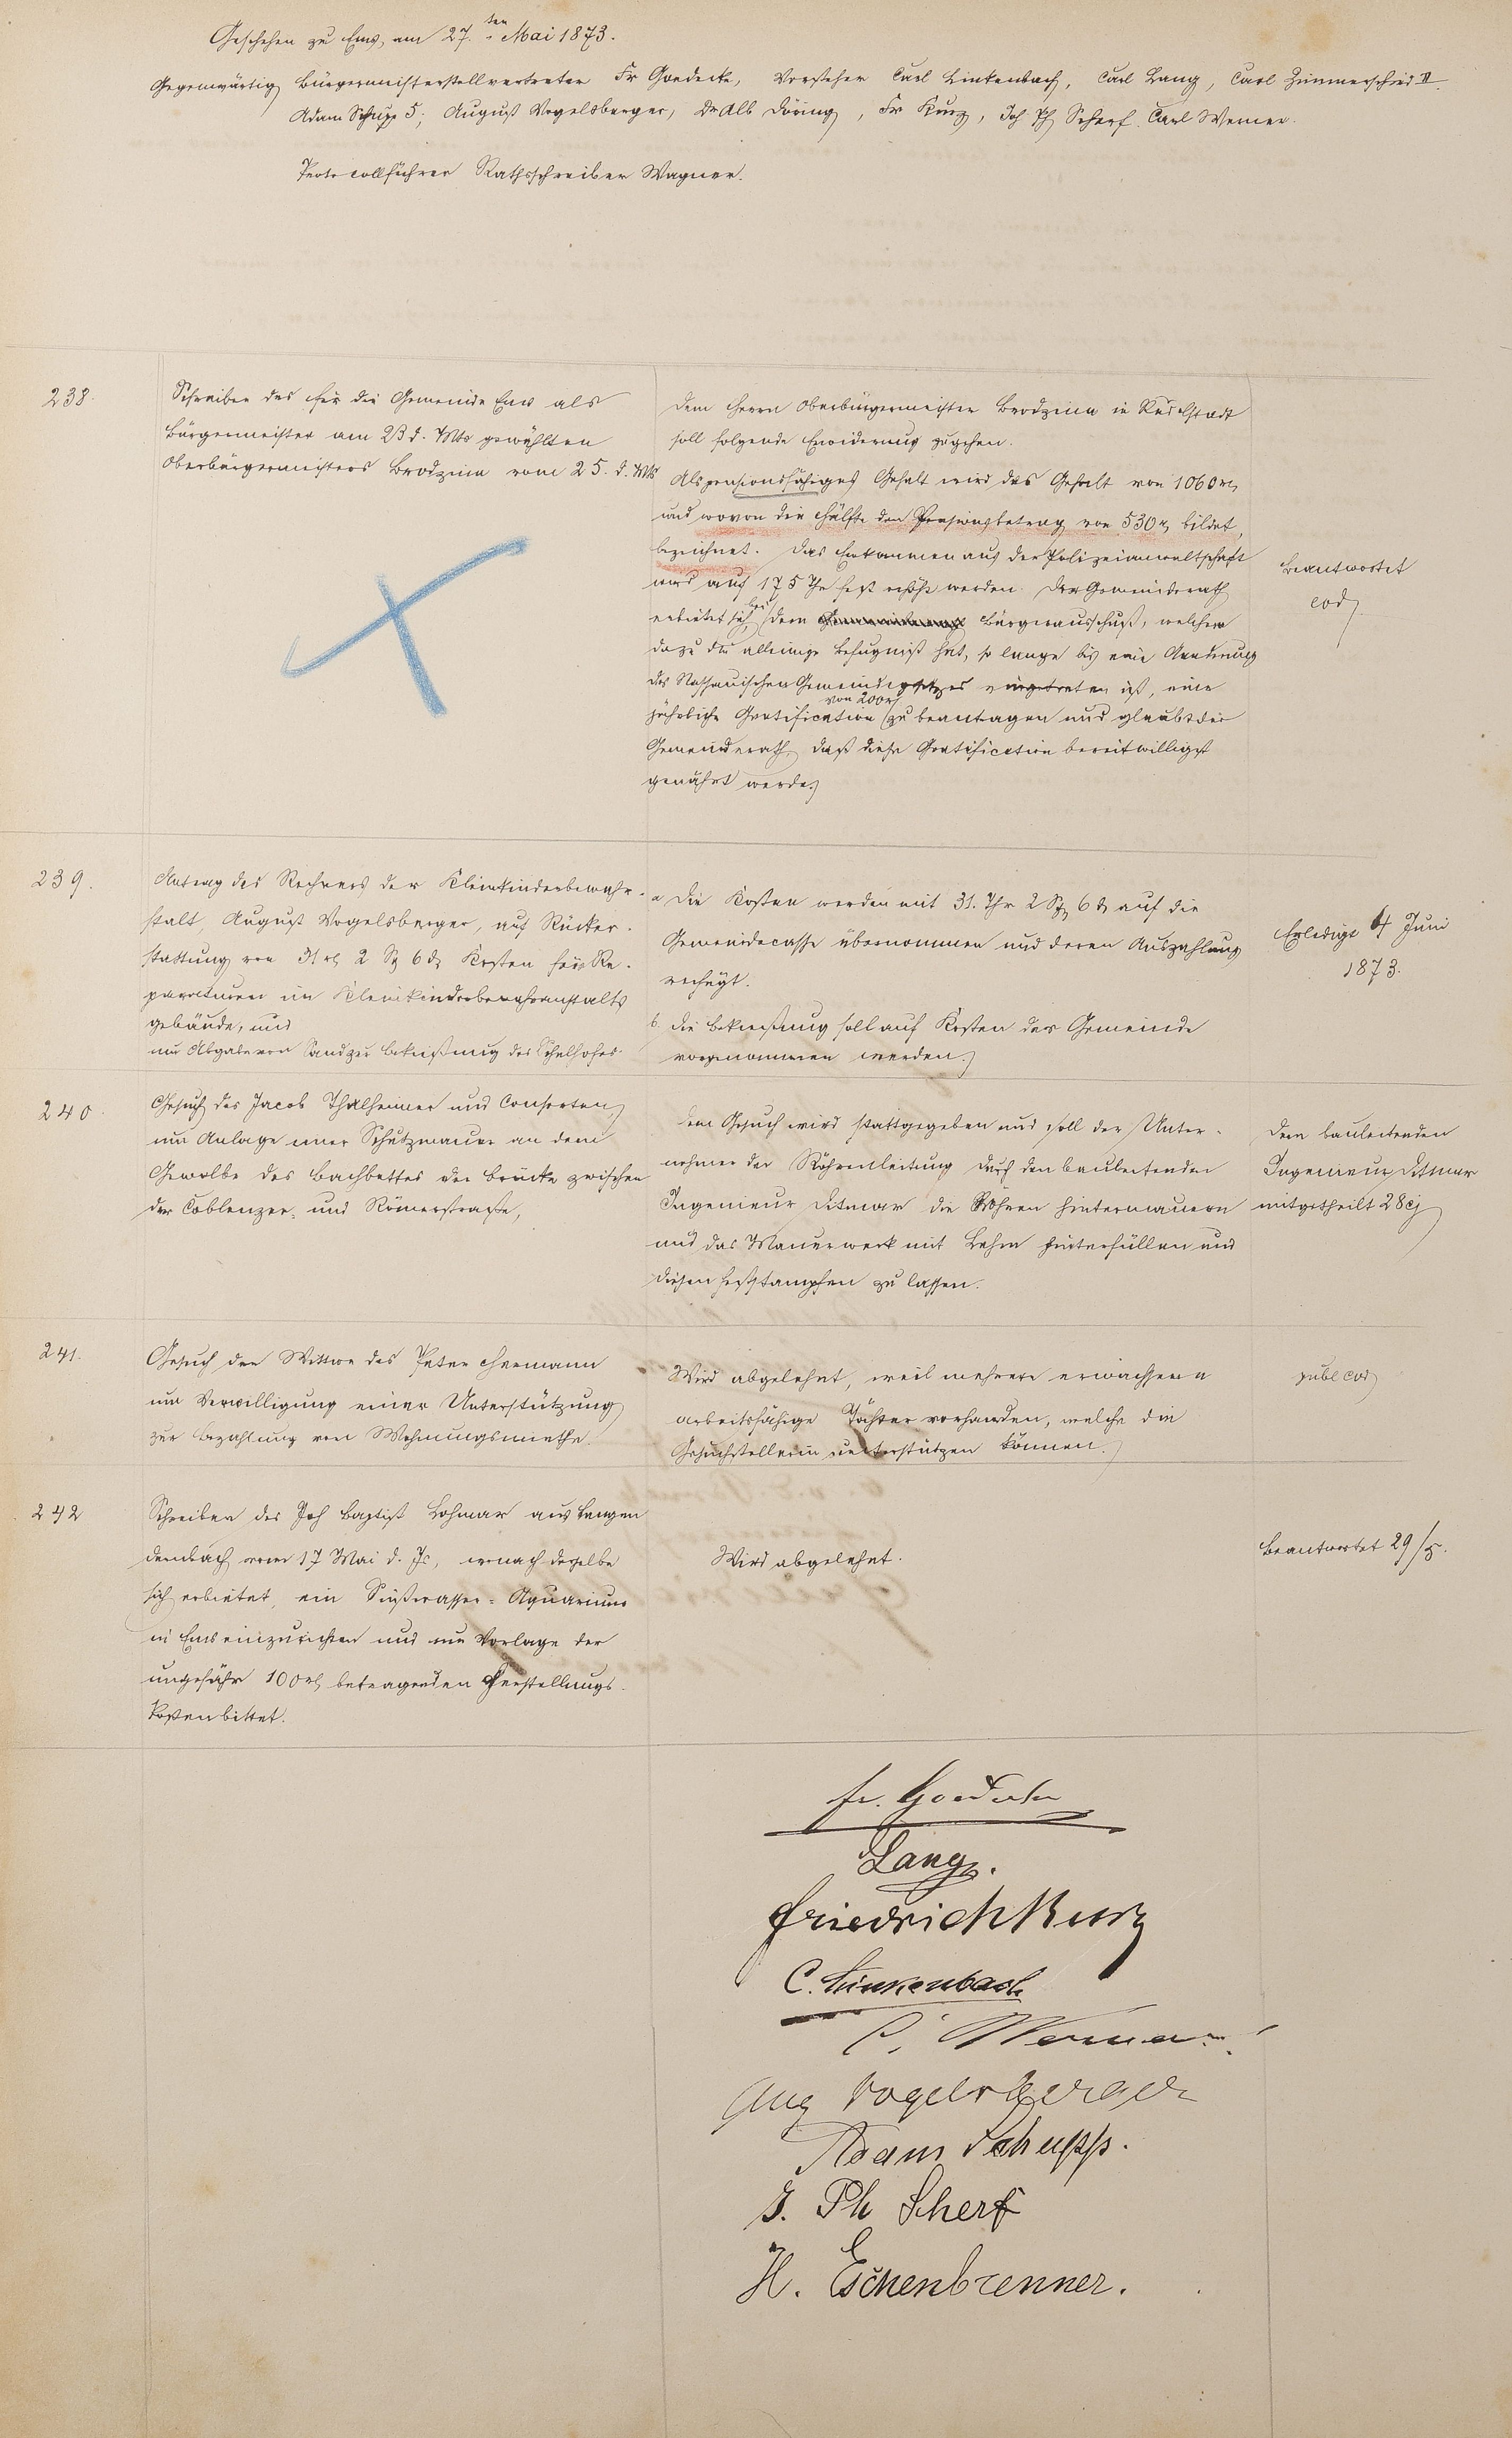 Geschehen zu Ems, am 27.ten Mai 1873.
Gegenwärtig Bürgermeisterstellvertreter Fr Goedecke, Vorsteher Carl Linkenbach, Carl Lang, Carl Zimmerschied II.
Adam Schupp 5; August Vogelsberger, Dr Alb Döring, Fr Kurz, Joh. Ph Scherf. Carl Werner.
Protocollführer Rathsschreiber Wagner.
238.
Schreiben des für die Gemeinde Ems als
Bürgermeister am 23 d. Mts gewählten
Oberbürgermeisters Brodzina vom 25. d. Mts
Dem Herrn Oberbürgermeister Brodzina in
soll folgende Erwiderung zugehen.
Als pensionsfähiges Gehalt wird das Gehalt von 1060 rh
und wovon die Hälfte den Pensionsbetrag von 530 rh bildet,
bezeichnet. Das Einkommen aus der Polizeianwaltschaft
wird auf 175 Thr fest erhöht werden. Der Gemeinderath
erbietet sich, bei dem Bürgerausschuß, welcher
dazu die alleinige Befugniß hat, so lange bis eine Aenderung
des Nassauischen Gemeindegesetzes eingetreten ist, eine
jährliche Gratification von 200 rh zu beantragen und glaubt der
Gemeinderath, daß diese Gratification bereitwilligst
gewährt werde.
Beantwortet
eod
239.
Antrag des Rechners der Kleinkinderbewahr-
stalt, August Vogelsberger, auf Rücker-
stattung von 31 rh 2 Sg 6 d Kosten für Re-
paraturen im Kleinkinderbewahranstalts
gebäude, und
um Abgabe von Sand zur Bekiesung des Schulhofes.
a Die Kosten werden mit 31. Thr 2 Sg 6 d auf die
Gemeindecasse übernommen und deren Auszahlung
verfügt.
b. Die Bekiesung soll auf Kosten der Gemeinde
vorgenommen werden.
Erledigt 4 Juni
1873.
240.
Gesuch des Jacob Thalheimer und Consorten,
um Anlage einer Schutzmauer an dem
Gewölbe des Bachbettes der Brücke zwischen
der Coblenzer- und Römerstraße,
Dem Gesuch wird stattgegeben und soll der Unter-
nehmer der Röhrenleitung durch den bauleitenden
Ingenieur Ditmar die Röhren hintermauern
und das Mauerwerk mit Lehm hinterfüllen und
diesen feststampfen zu lassen.
Dem bauleitenden
Ingenieur Dittmar
mitgetheilt 28 cj
241.
Gesuch der Wittwe des Peter Hermann
um Verwilligung einer Unterstützung
zur Bezahlung von Wohnungsmiethe.
Wird abgelehnt, weil mehrere erwachsene
arbeitsfähige Töchter vorhanden, welche die
Gesuchstellerin unterstützen können.
publ eod
242
Schreiben des Joh Baptist Lohmar aus Langen
dernbach vom 17 Mai d. Js, wonach derselbe
sich erbietet, ein Süßwasser-Aquarium
in Ems einzurichten und um Vorlage der
ungefähr 100 rh betragenden Herstellungs-
kosten bittet.
Wird abgelehnt.
Beantwortet 29/5.
Fr. Goedecke
Lang.
Friedrich Kurz
C. Linkenbach
C. Werner.
Aug Vogelsberger
Adam Schupp.
J. Ph Scherf
H. Eschenbrenner.